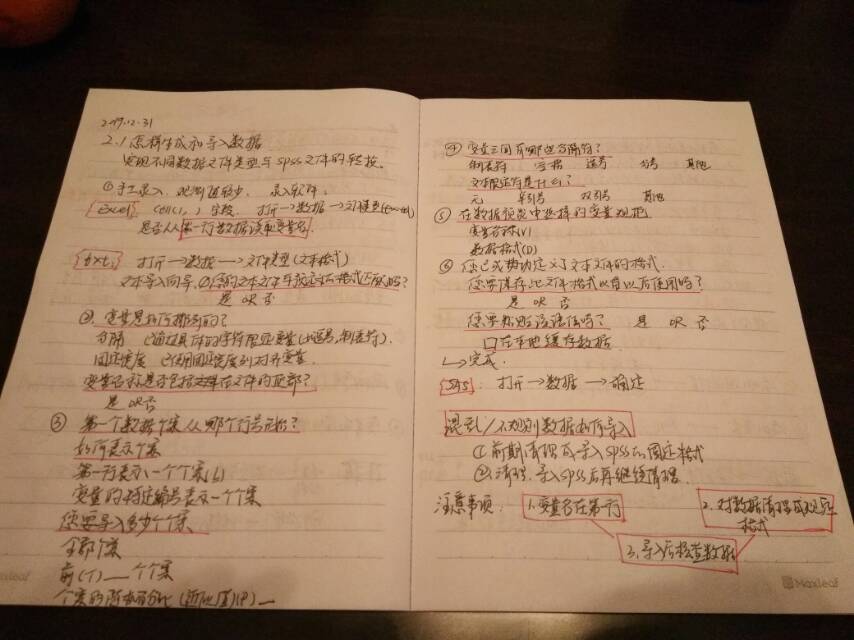 2019.12.31
2.1 怎样生成和导入数据
实现不同数据文件类型与spss文件的转换.
①手工录入. 观测值较少. 录入软件.
Excel. 打开→数据→文件类型(Excel)
是否从第一行数据读取变量名.
txt. 打开→数据→文件类型(文本格式)
文本导入向导.(1)您的文本文件与预定义的格式匹配吗?
是 OR 否
②. 变量是如何排列的?
分隔 (通过具体的字符限定变量(比逗号,制表符).
固定宽度 使用固定宽度列对齐变量.
变量名称是否包括在文件的顶部?
是 OR 否
③ 第一个数据个案从哪个行号开始?
如何表示个案
第一行表示一个个案(L)
变量的特定编号表示一个个案
您要导入多少个个案
全部个案
前(T)__个个案
个案的随机百分比(近似值)(P)__
④ 变量之间有哪些分隔符?
制表符 空格 逗号 分号 其他
文本限定符是什么?
无 单引号 双引号 其他
⑤ 在数据预览中选择的变量规范
变量名称(V)
数据格式(D)
⑥ 您已成功地定义了文本文件的格式.
您要保存此文件格式以背以后使用吗?
是 OR 否
您要粘贴该语法吗? 是 OR 否
口在本地缓存数据
↳完成.
SAS: 打开→数据→确定
混乱/不规则数据如何导入
①前期清理成导入spss的固定格式
②清理. 导入spss后再继续清理.
注意事项: 1.变量名在第一行 2.对数据清理成规定
格式
3.导入后检查数据
Maxleaf